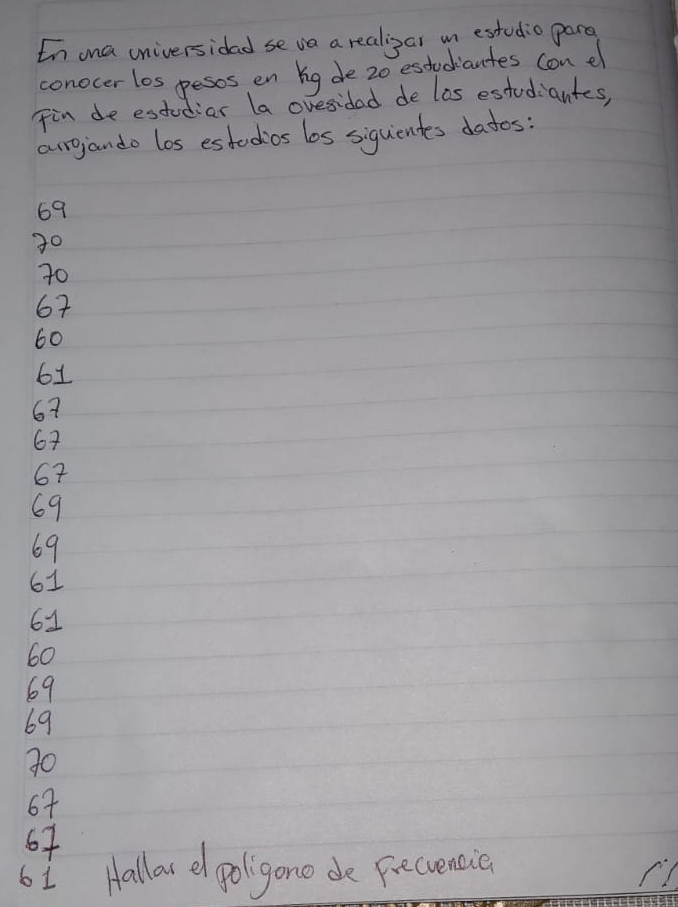 En una universidad se va a realizar un estudio para
conocer los pesos en kg de 20 estudiantes con el
fin de estudiar la ovesidad de los estudiantes,
arrojando los estudios los siguientes datos:
69
70
70
67
60
61
67
67
67
69
69
61
61
60
69
69
70
67
67
61 Hallar el poligono de frecuencia